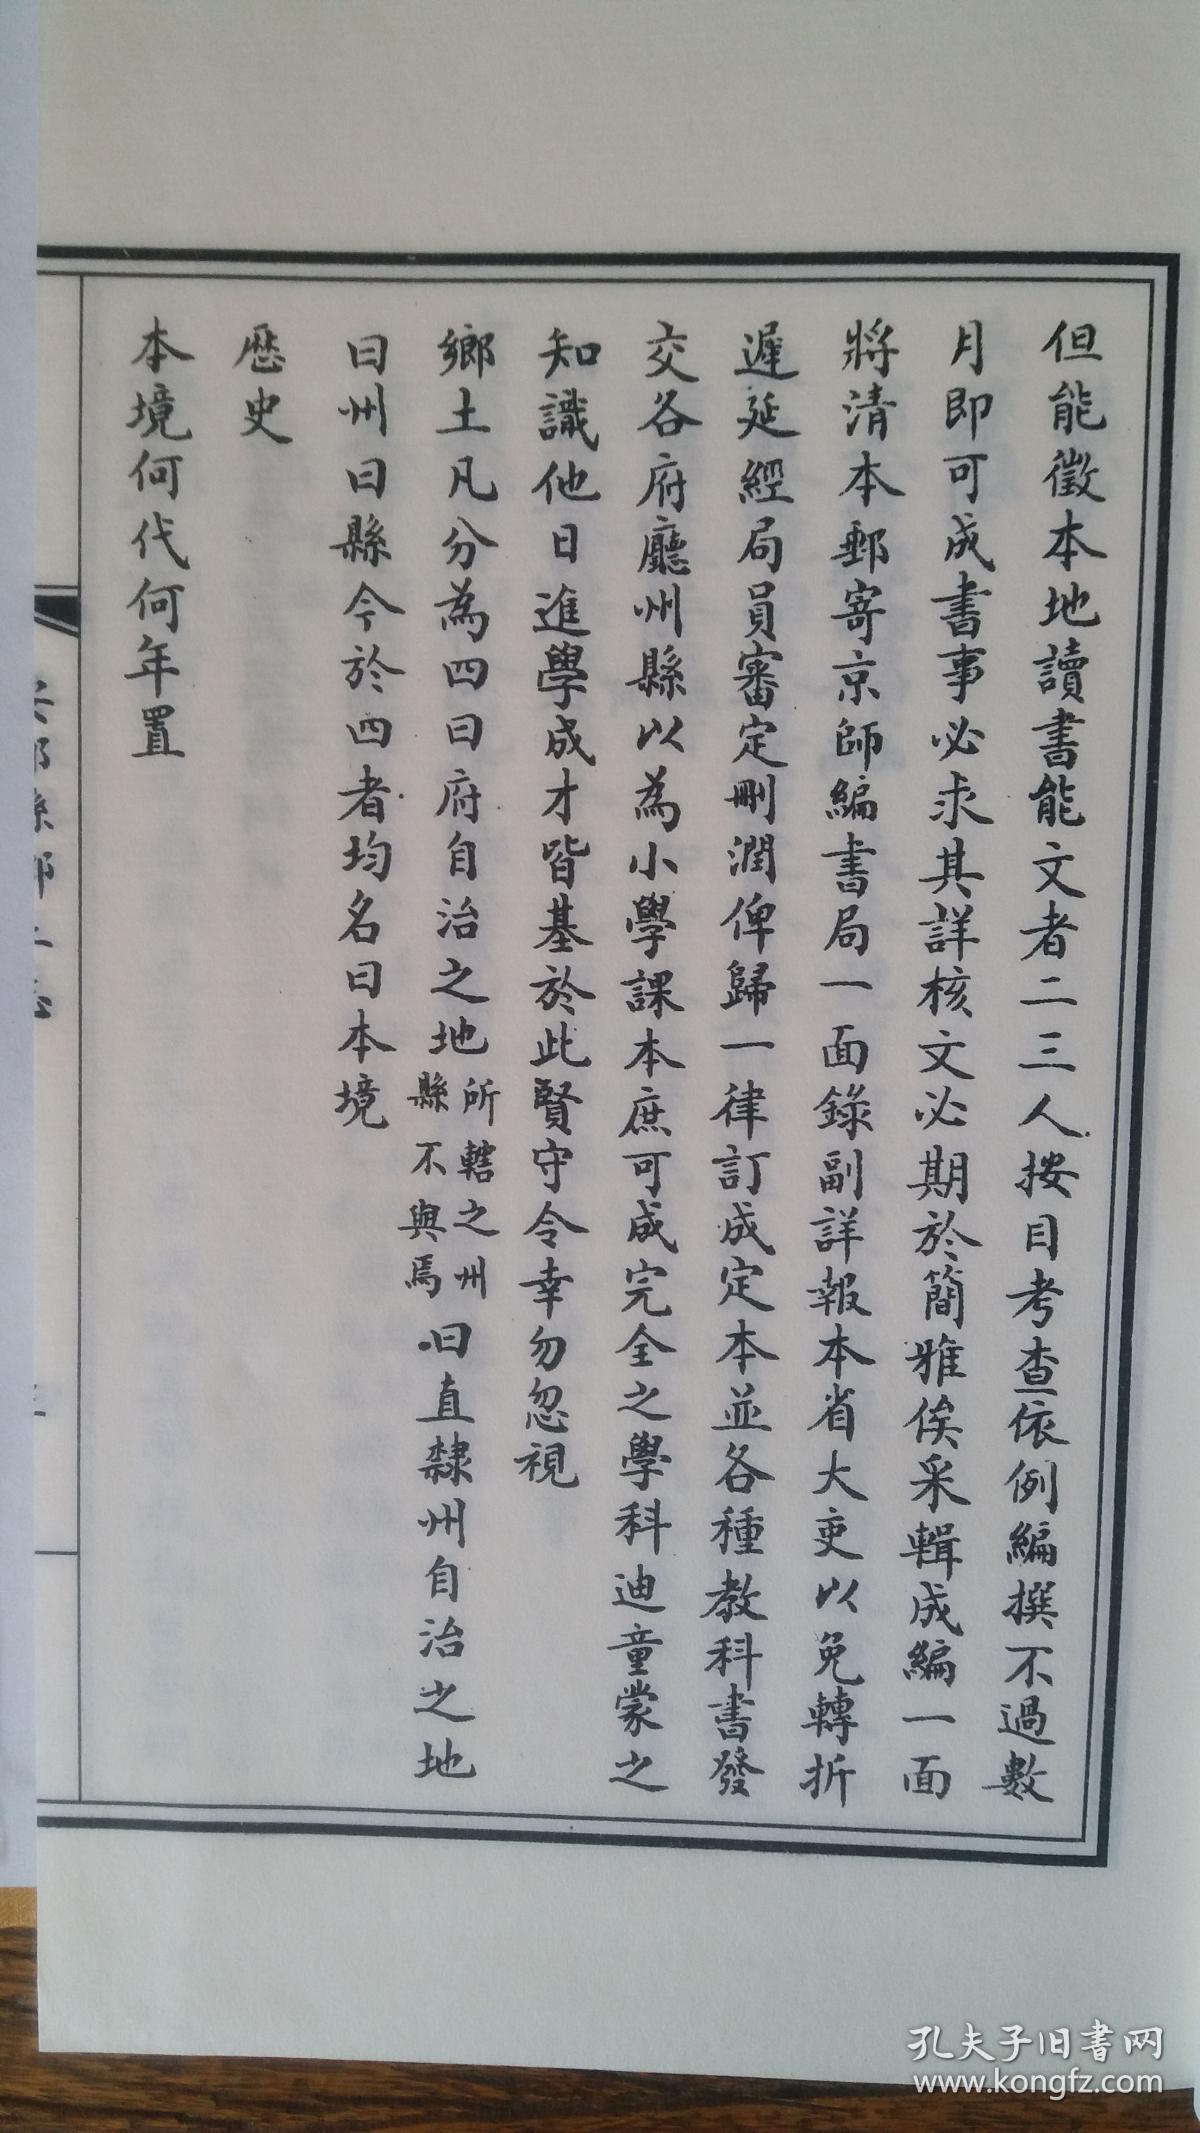 但能徵本地讀書能文者二三人按目考查依例編撰不過數
月即可成書事必求其詳核文必期於簡雅俟采輯成編一面
將清本郵寄京師編書局一面錄副詳報本省大吏以免轉折
遲延經局員審定刪潤俾歸一律訂成定本並各種教科書發
交各府廳州縣以為小學課本庶可成完全之學科迪童蒙之
知識他日進學成才皆基於此賢守令幸勿忽視
鄉土凡分為四曰府自治之地所轄之州縣不與焉曰直隸州自治之地
曰州曰縣今於四者均名曰本境
歷史
本境何代何年置
孔夫子旧书网
www.kongfz.com